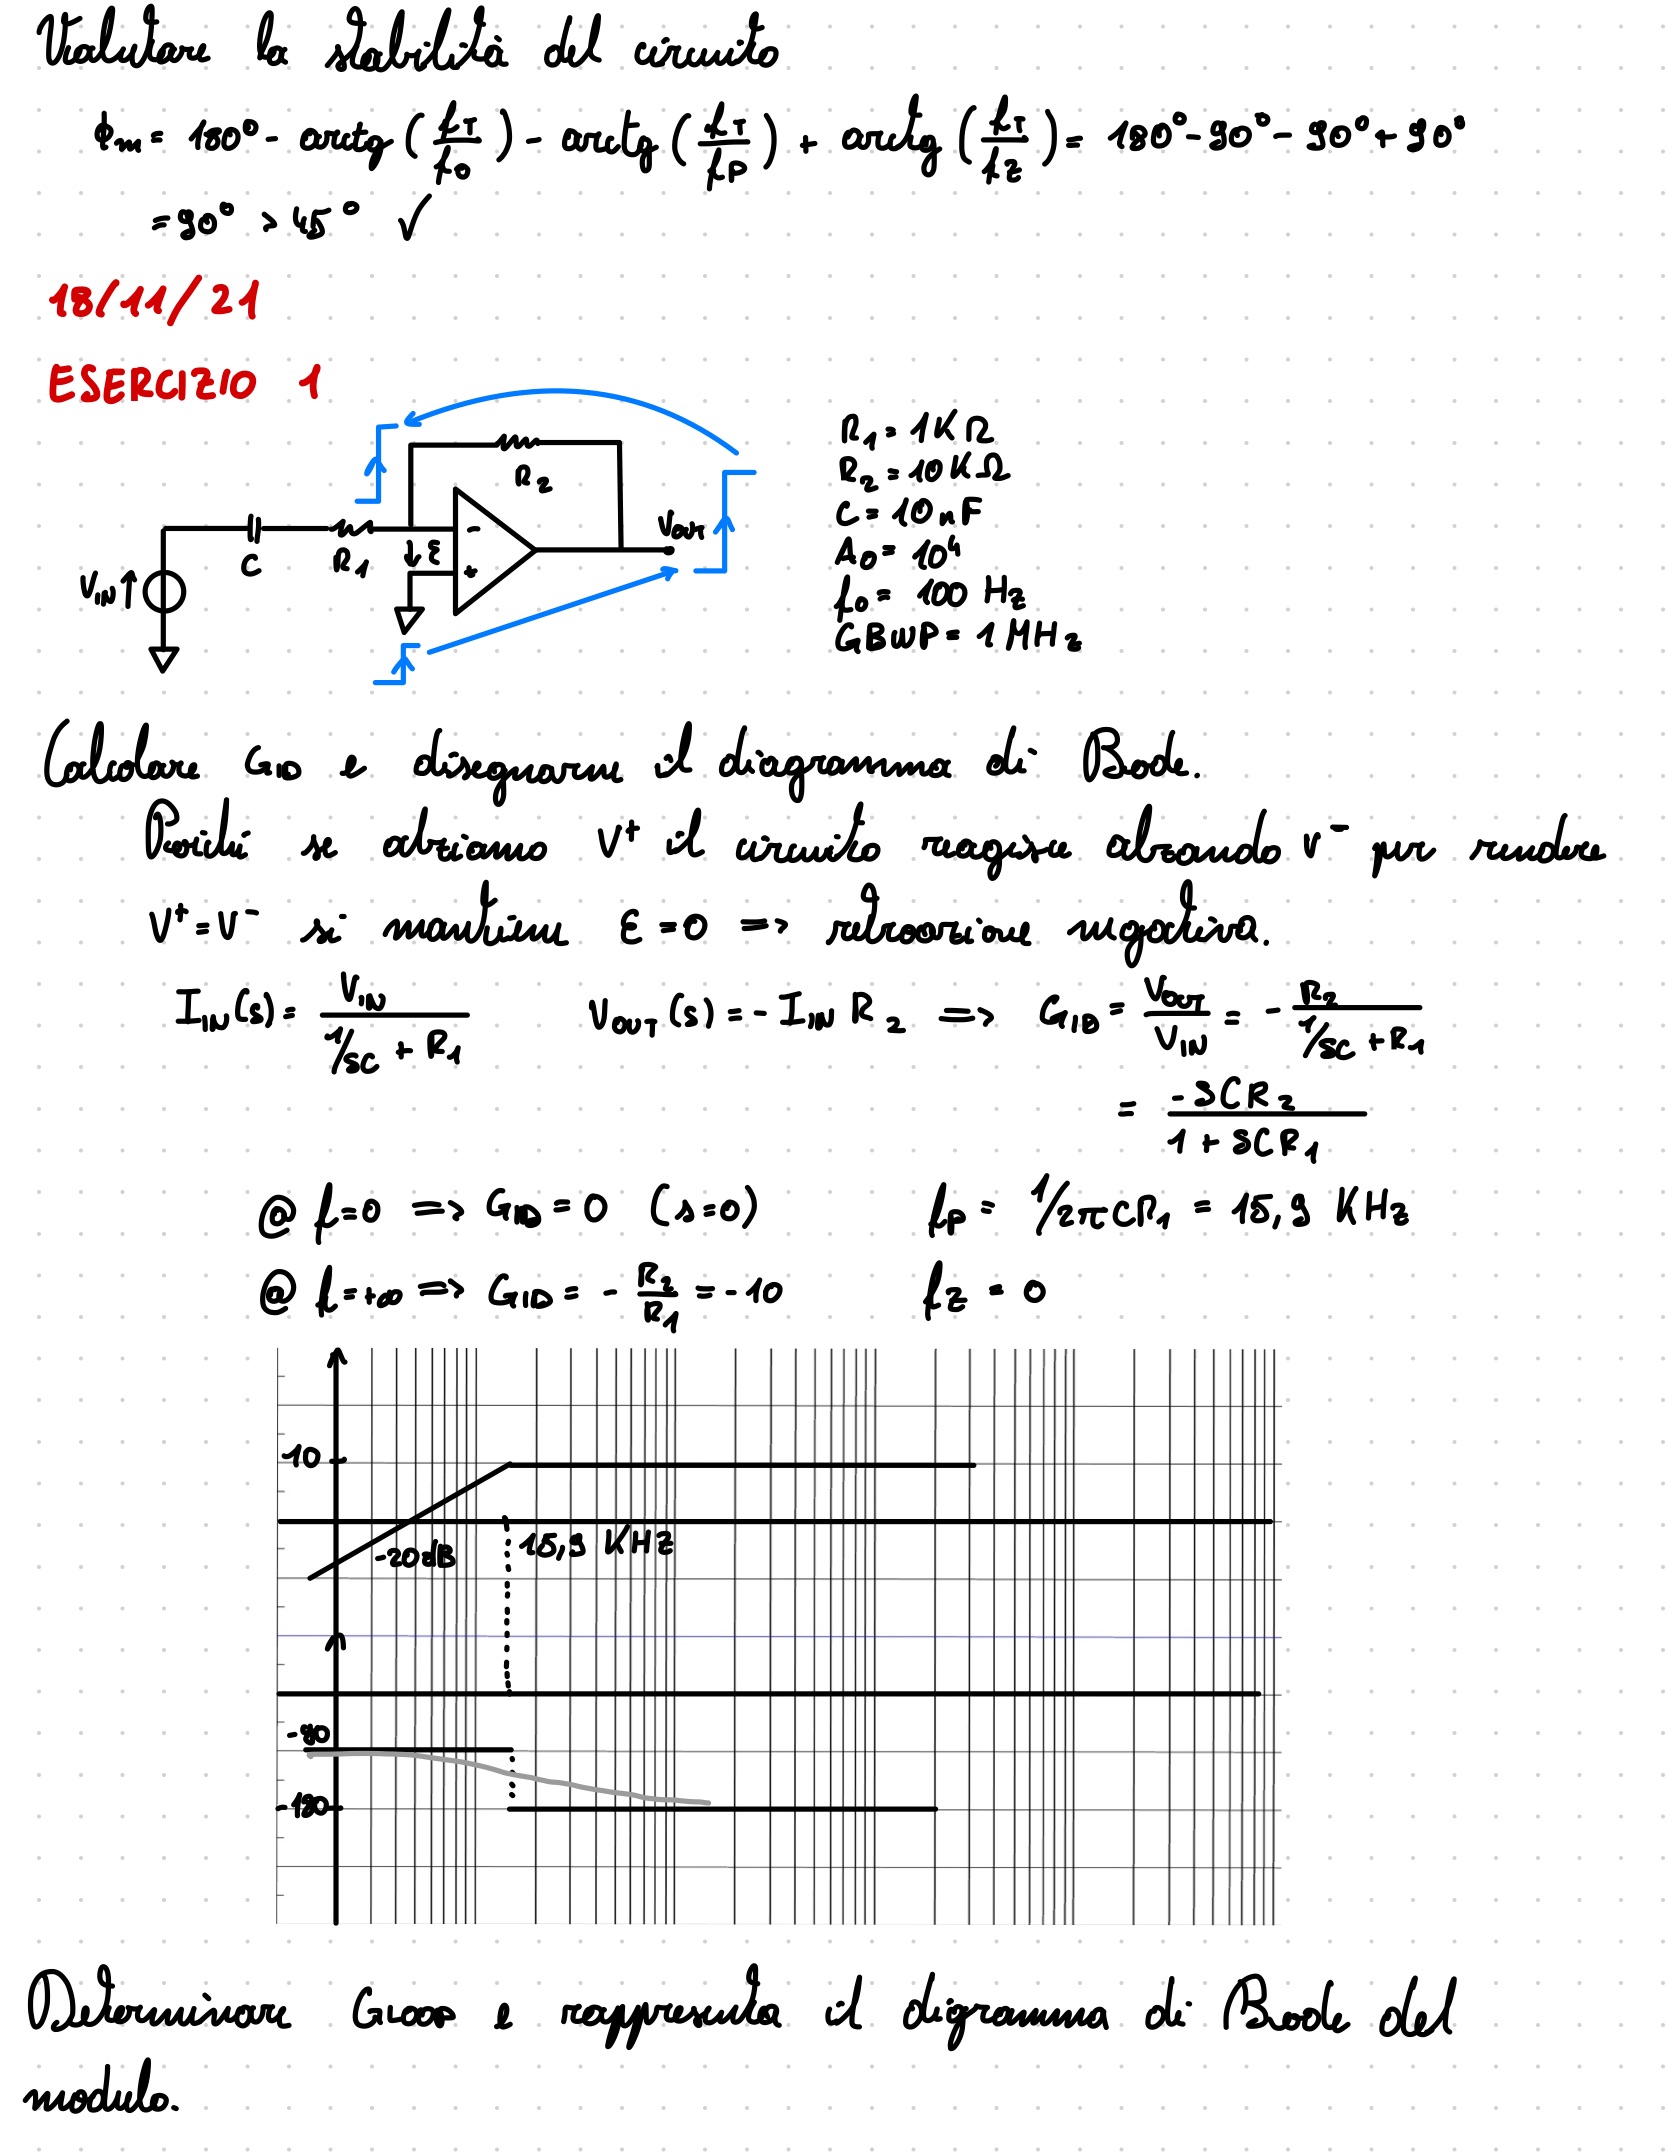 Valutare la stabilità del circuito
Φm = 180° - arctg (fT/f0) - arctg (fT/fP) + arctg (fT/fZ) = 180° - 90° - 90° + 90°
= 90° > 45° ✓
18/11/21
ESERCIZIO 1
R2
VIN
C
R1
ε
-
+
VOUT
R1 = 1KΩ
R2 = 10KΩ
C = 10nF
A0 = 10⁴
f0 = 100 Hz
GBWP = 1 MHz
Calcolare GID e disegnarne il diagramma di Bode.
Poiché se alziamo V⁺ il circuito reagisce alzando V⁻ per rendere
V⁺ = V⁻ si mantiene ε = 0 => retroazione negativa.
IIN(s) = VIN / (1/sC + R1) VOUT(s) = - IIN R2 => GID = VOUT/VIN = - R2 / (1/sC + R1)
= -SCR2 / (1 + SCR1)
@ f=0 => GID = 0 (s=0) fP = 1/2πCR1 = 15,9 KHz
@ f=+∞ => GID = - R2/R1 = -10 fZ = 0
10
-20dB
15,9 KHz
-90
-180
Determinare GLOOP e rappresenta il digramma di Bode del
modulo.